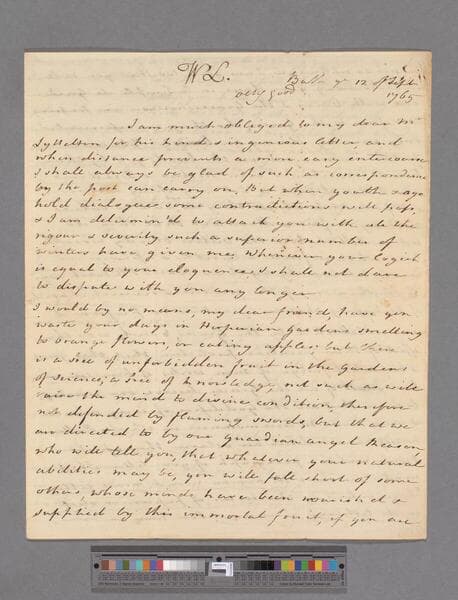 WL.
Bath ye 12 of Sept
very good 1765
I am much obliged to my dear Mr
Lyttelton for his kind & ingenious letter, and
when distance prevents a more easy entercourse
I shall always be glad of such as correspondence
by the post can carry on. But when youth & age
hold dialogues some contradictions will pass,
& I am determin'd to attack you with all the
rigour & severity such a superior number of
winters have given me. Whenever your logick
is equal to your eloquence I shall not dare
to dispute with you any longer
I would by no means, my dear friend, have you
waste your days in Hesperian gardens smelling
to orange flowers, or eating apples; but there
is a tree of unforbidden fruit in the gardens
of science; a tree of knowledge, not such as will
raise the mind to divine condition, therefore
not defended by flaming swords, but that we
are directed to by our guardian angel Reason,
who will tell you, that whatever your natural
abilities may be, you will fall short of some
others, whose minds have been nourish'd &
supplied by this immortal fruit, if you are